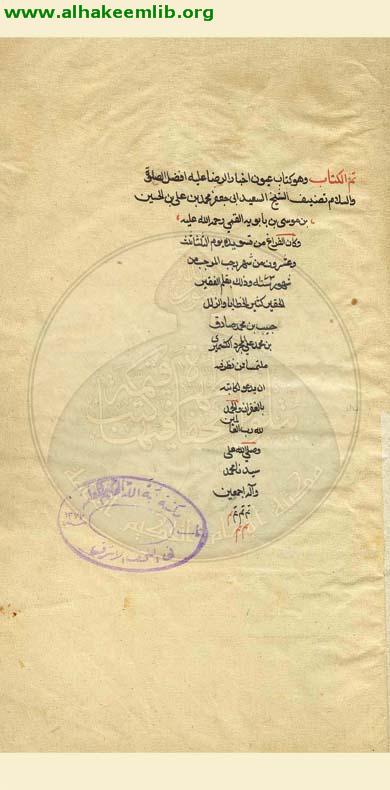 www.alhakeemlib.org
تم الكتاب وهو كتاب عيون اخبار الرضا عليه افضل الصلوة
والسلام تصنيف الشيخ السعيد ابى جعفر محمد بن على بن الحسين
بن موسى بن بابويه القمي رحمة الله عليه
وكان الفراغ من تسويده يوم الثالث
وعشرون من شهر رجب المرجب من
شهور سنة وذلك بقلم الفقير
الحقير كثير الخطايا والزلل
حبيب بن محمد صادق
بن محمد على
ملتمسا من نظر فيه
ان يدعو لكاتبه
بالغفران والحمد
لله رب العالمين
وصلى الله على
سيدنا محمد
وآله اجمعين
تم تم تم
تم تم
مكتبة آية الله
في النجف الاشرف